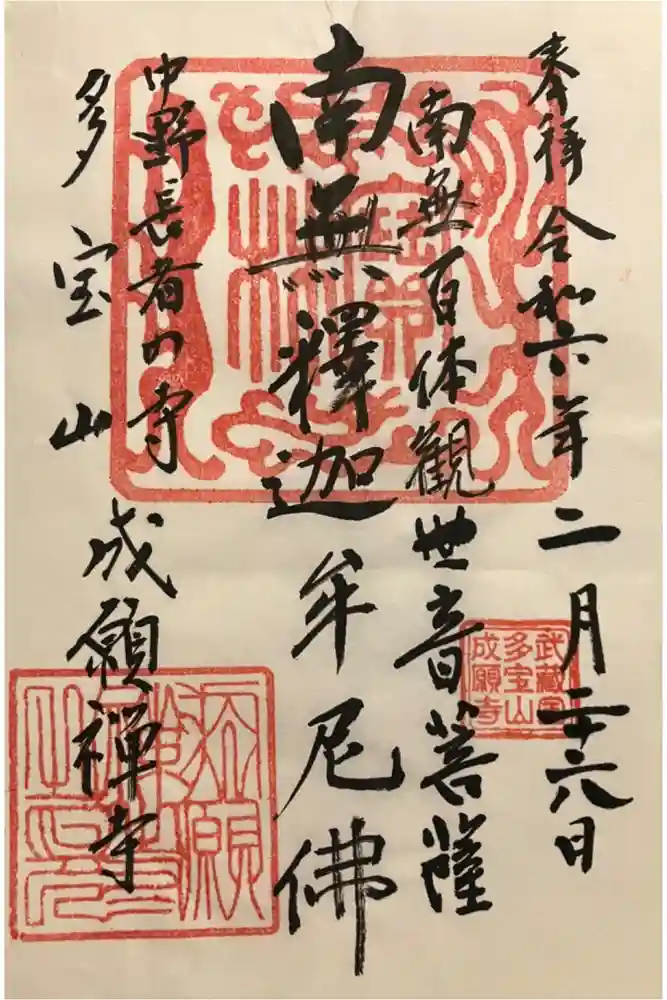 奉拝 令和六年二月二十六日
武蔵国
多宝山
成願寺
南無百体観世音菩薩
南無釋迦牟尼佛
中野長者の寺
多宝山 成願禅寺